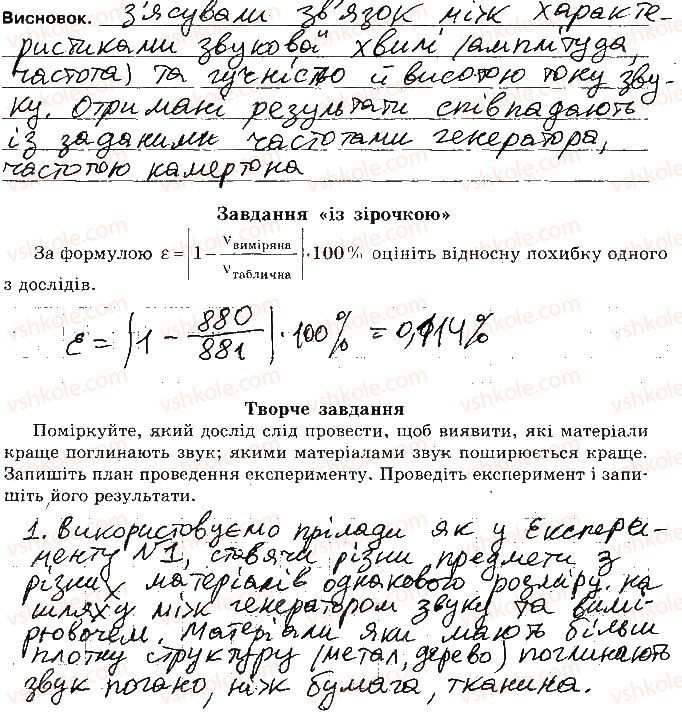 Висновок. з'ясували зв'язок між характе-
ристиками звукової хвилі (амплітуда,
частота) та гучністю й висотою тону зву-
ку. Отримані результати співпадають
із заданими частотами генератора,
частотою камертона
Завдання «із зірочкою»
За формулою ε = |1 − ν виміряна / ν таблична| · 100% оцініть відносну похибку одного
з дослідів.
ε = |1 − 880/881| · 100% = 0,114%
Творче завдання
Поміркуйте, який дослід слід провести, щоб виявити, які матеріали
краще поглинають звук; якими матеріалами звук поширюється краще.
Запишіть план проведення експерименту. Проведіть експеримент і запи-
шіть його результати.
1. Використовуємо прилади як у Експери-
менту №1, ставячи різни предмети з
різних матеріалів однакового розміру на
шляху між генератором звуку та вимі-
рювочем. Матеріали яки мають більш
плотну структуру (метал, дерево) поглинають
звук погано, ніж бумага, тканина.